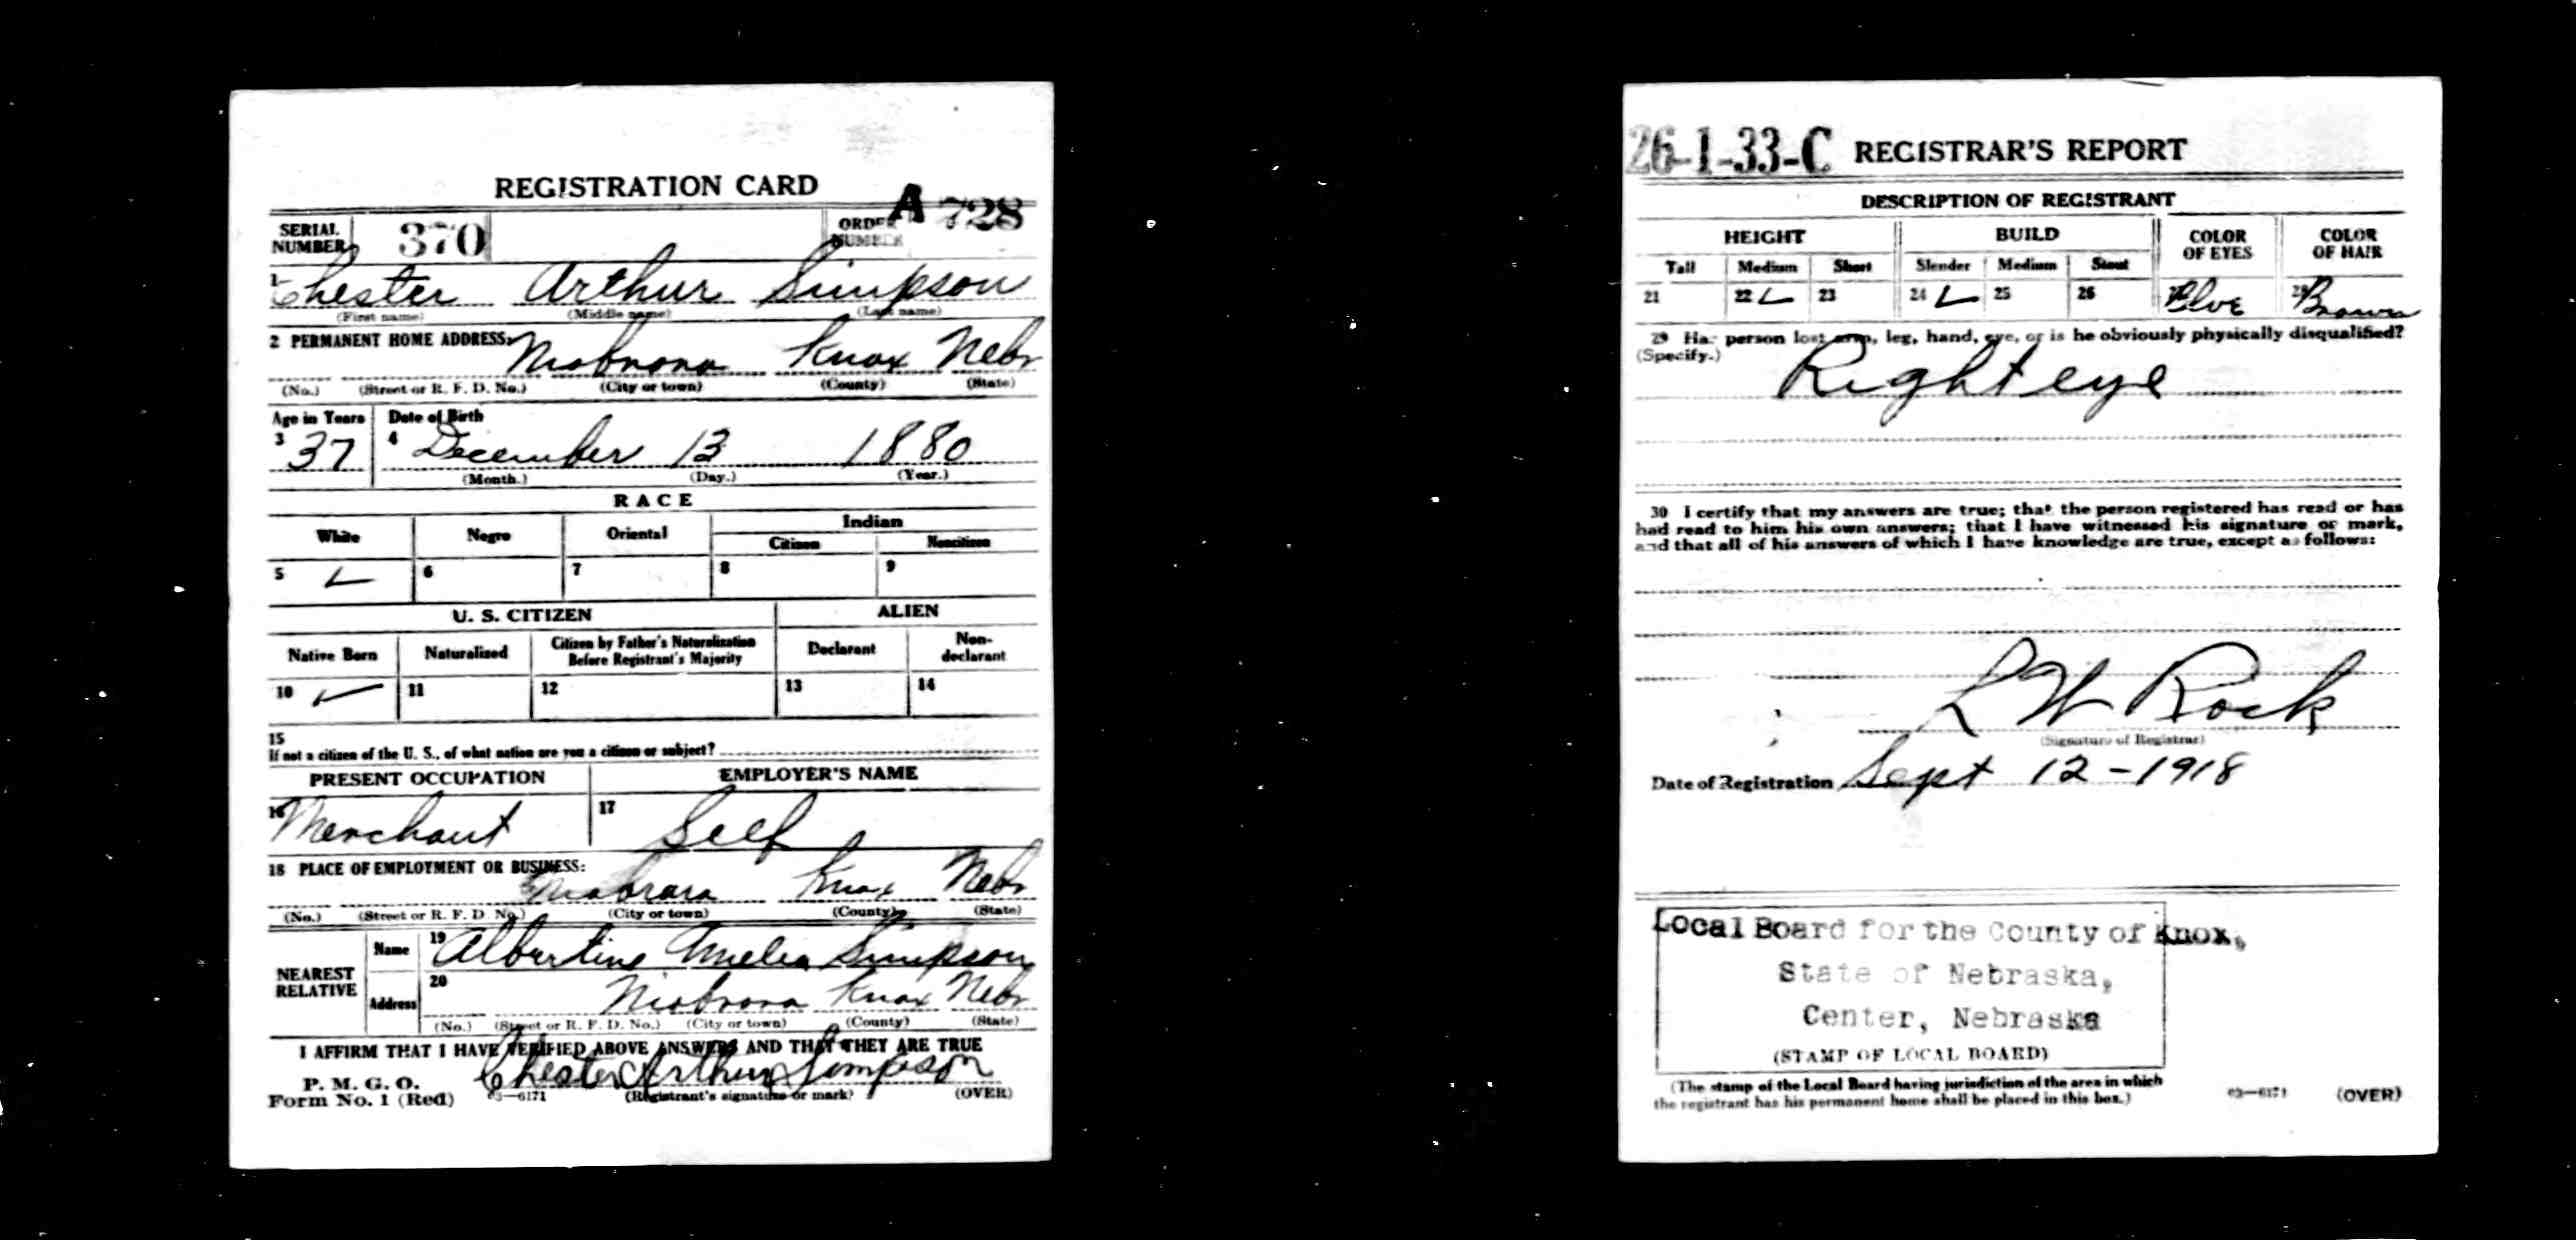 REGISTRATION CARD
SERIAL NUMBER 370 ORDER NUMBER A 728
1 Chester Arthur Simpson
(First name) (Middle name) (Last name)
2 PERMANENT HOME ADDRESS: Niobrara Knox Nebr
(No.) (Street or R. F. D. No.) (City or town) (County) (State)
Age in Years Date of Birth
3 37 4 December 13 1880
(Month.) (Day.) (Year.)
RACE
White Negro Oriental Indian
Citizen Noncitizen
5 ✓ 6 7 8 9
U. S. CITIZEN ALIEN
Native Born Naturalized Citizen by Father's Naturalization Before Registrant's Majority Declarant Non-declarant
10 ✓ 11 12 13 14
15
If not a citizen of the U. S., of what nation are you a citizen or subject?
PRESENT OCCUPATION EMPLOYER'S NAME
16 Merchant 17 Self
18 PLACE OF EMPLOYMENT OR BUSINESS:
Niobrara Knox Nebr
(No.) (Street or R. F. D. No.) (City or town) (County) (State)
NEAREST RELATIVE
Name 19 Albertine Amelia Simpson
Address 20 Niobrara Knox Nebr
(No.) (Street or R. F. D. No.) (City or town) (County) (State)
I AFFIRM THAT I HAVE VERIFIED ABOVE ANSWERS AND THAT THEY ARE TRUE
P. M. G. O.
Form No. 1 (Red) 03—6171 Chester Arthur Simpson
(Registrant's signature or mark) (OVER)
26-1-33-C REGISTRAR'S REPORT
DESCRIPTION OF REGISTRANT
HEIGHT BUILD COLOR OF EYES COLOR OF HAIR
Tall Medium Short Slender Medium Stout
21 22 ✓ 23 24 ✓ 25 26 27 Blue 28 Brown
29 Has person lost arm, leg, hand, eye, or is he obviously physically disqualified?
(Specify.) Right eye
30 I certify that my answers are true; that the person registered has read or has
had read to him his own answers; that I have witnessed his signature or mark,
and that all of his answers of which I have knowledge are true, except as follows:
L W Rock
(Signature of Registrar)
Date of Registration Sept 12-1918
Local Board for the County of Knox,
State of Nebraska,
Center, Nebraska
(STAMP OF LOCAL BOARD)
(The stamp of the Local Board having jurisdiction of the area in which
the registrant has his permanent home shall be placed in this box.)
03—6171 (OVER)